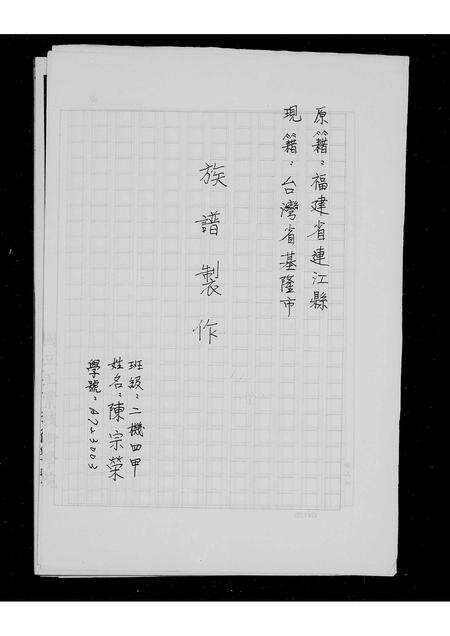 原籍：福建省連江縣
現籍：台灣省基隆市
族譜製作
班級：二機四甲
姓名：陳宗榮
學號：A723003